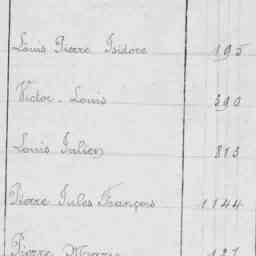 Louis Pierre Isidore 195
Victor - Louis 390
Louis Julien 813
Pierre Jules François 1144
Pierre